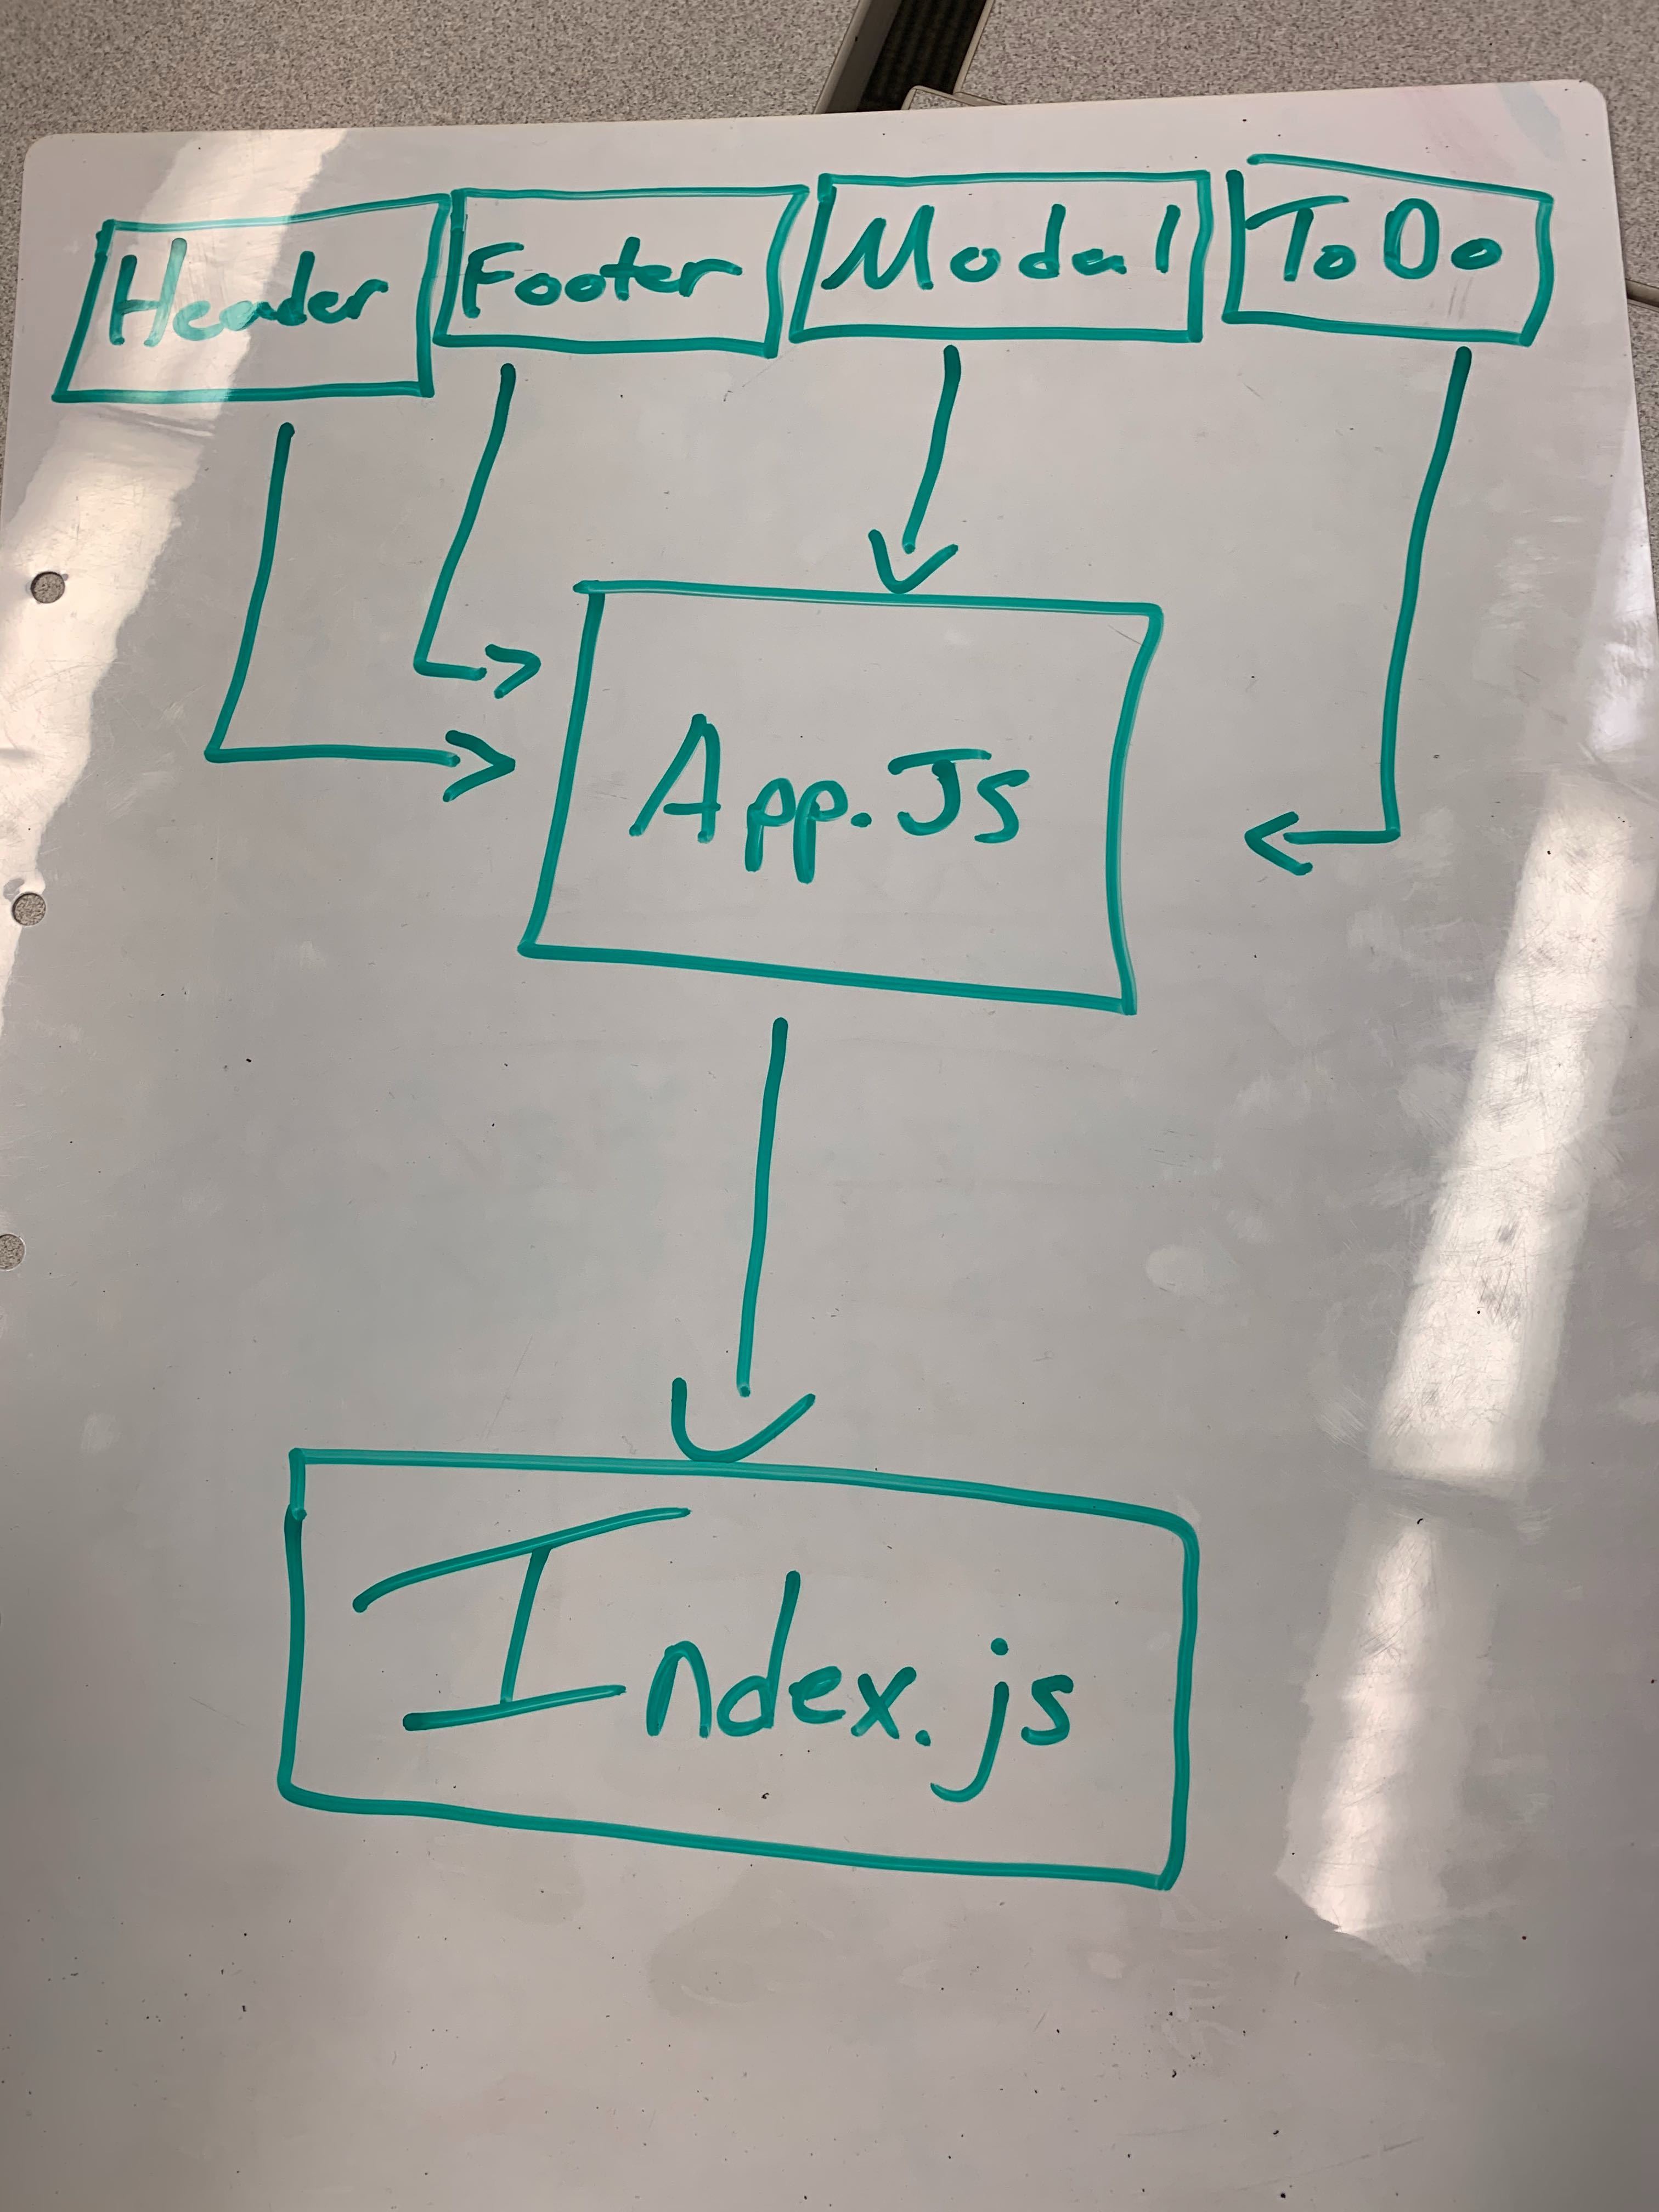 Header Footer Modal ToDo
App.Js
Index.js